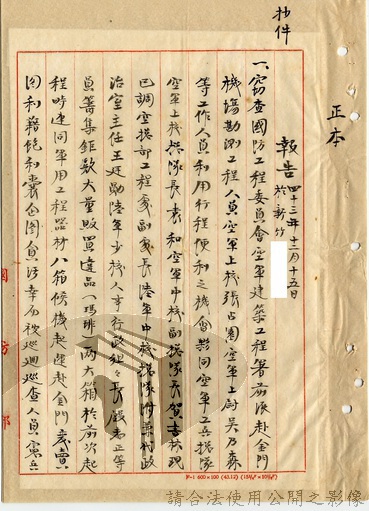 抄件
正本
報告 四十三年十二月十五日
於新竹
一、竊查國防工程委員會空軍建築工程署前派赴金門
機場勘測工程人員空軍上校張占園空軍上尉吳乃森
等工作人員利用行程便利之機會夥同空軍工兵搜隊
空軍上校 隊長袁和空軍中校副 隊長賀吉 現
已調空 部工程處副處長陸軍中校 隊 政
治室主任王廷勛陸軍少校人事行政組組長嚴 正等
員籌集鉅款大量販買違品(瑪琲)兩大箱於前次起
程時連同軍用工程器材八箱候機起運赴金門 賣
圖利藉飽私囊 圖 幸為被巡迴巡查人員憲兵
國防部
F-1 600×100 (43.12)
請合法使用公開之影像